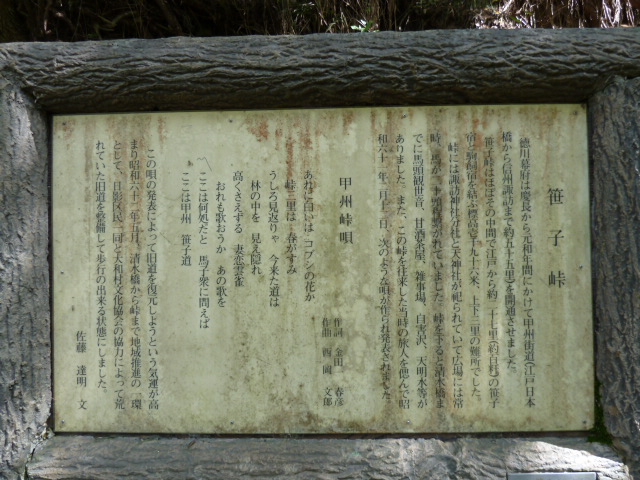 笹子峠
徳川幕府は慶長から元和年間にかけて甲州街道(江戸日本
橋から信州諏訪まで約五十五里)を開通させました。
笹子峠はほぼその中間で江戸から約二十七里(約百粁)の笹子
宿と駒飼宿を結ぶ標高千九十六米、上下三里の難所でした。
峠には諏訪神社分社と天神社が祀られていて広場には常
時、馬が二十頭程繋がれていました。峠を下ると清水橋ま
でに馬頭観世音、甘酒茶屋、雑事場、自害沢、天明水等が
ありました。また、この峠を往来した当時の旅人を偲んで昭
和六十一年二月十二日、次のような唄が作られ発表されました。
甲州峠唄
作詞 金田 春彦
作曲 西岡 文郎
あれに白いは コブシの花か
峠三里は 春がすみ
うしろ見返りゃ 今来た道は
林の中を 見え隠れ
高くさえずる 妻恋雲雀
おれも歌おうか あの歌を
ここは何処だと 馬子衆に問えば
ここは甲州 笹子道
この唄の発表によって旧道を復元しようという気運が高
まり昭和六十二年五月、清水橋から峠まで地域推進の一環
として、日影区民一同と大和村文化協会の協力によって荒
れていた旧道を整備して歩行の出来る状態にしました。
佐藤 達明 文